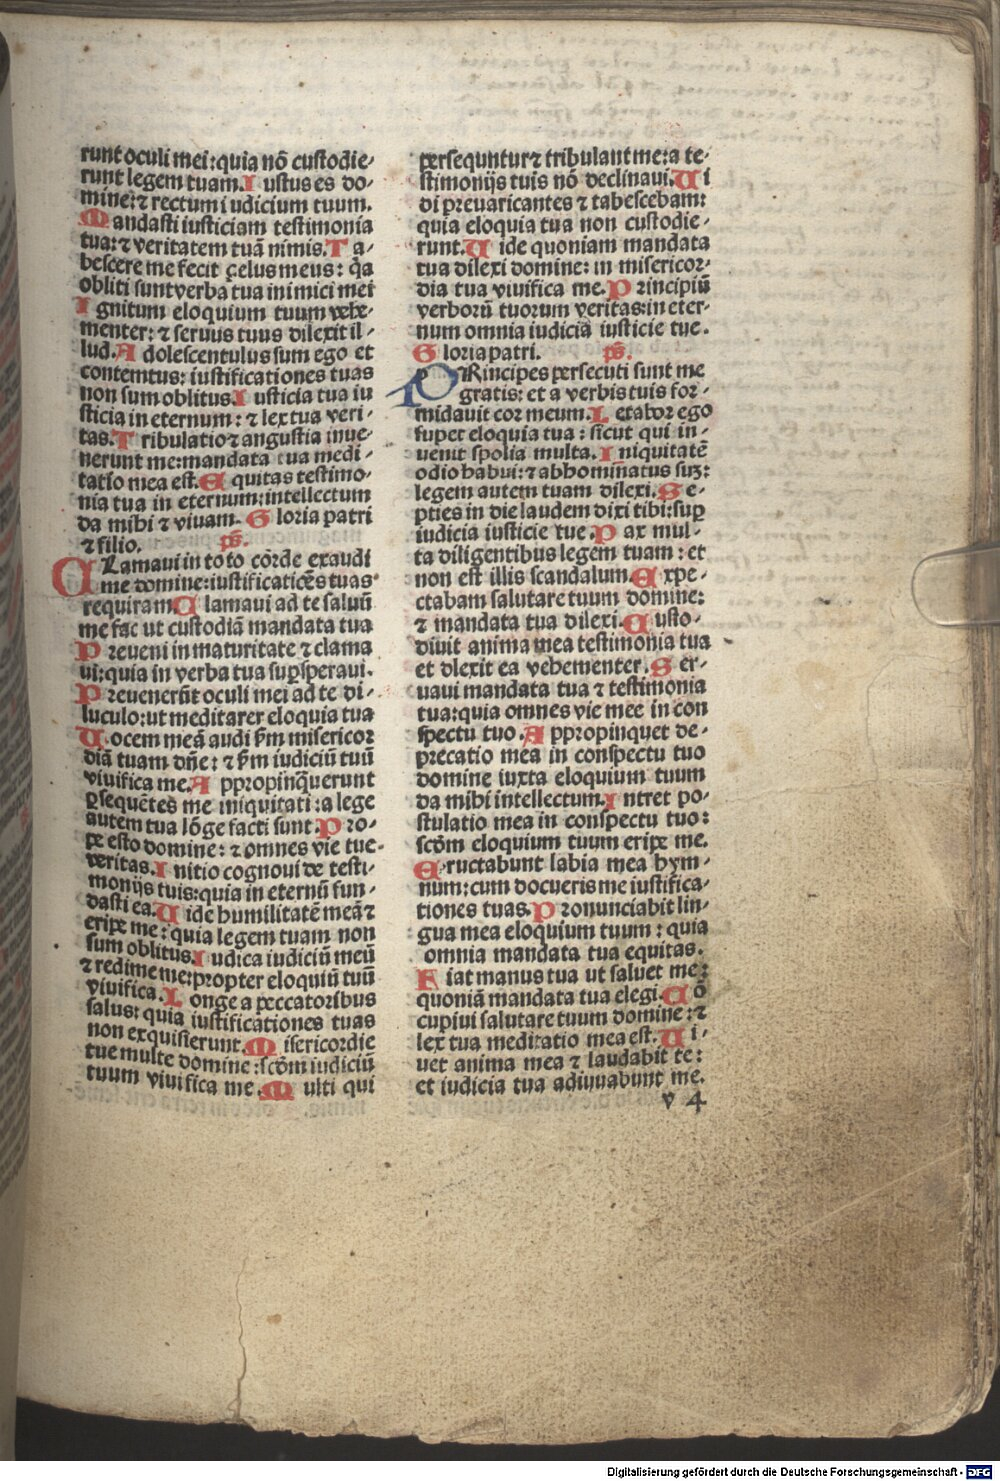 runt oculi mei: quia nō custodie-
runt legem tuam. Iustus es do-
mine: ⁊ rectum iudicium tuum.
Mandasti iusticiam testimonia
tua: ⁊ veritatem tuā nimis. Ta-
bescere me fecit çelus meus: q̄a
obliti sunt verba tua inimici mei
Ignitum eloquium tuum vehe-
menter: ⁊ seruus tuus dilexit il-
lud. Adolescentulus sum ego et
contemtus: iustificationes tuas
non sum oblitus. Iusticia tua iu
sticia in eternum: ⁊ lex tua veri-
tas. Tribulatio ⁊ angustia inue-
nerunt me: mandata tua medi-
tatio mea est. Equitas testimo-
nia tua in eternum: intellectum
da mihi ⁊ viuam. Gloria patri
⁊ filio. ps̄.
Clamaui in toto corde exaudi
me domine: iustificatiōes tuas
requiram Clamaui ad te saluū
me fac ut custodiā mandata tua
Preueni in maturitate ⁊ clama
ui: quia in verba tua sup̄speraui.
Preuenerūt oculi mei ad te di-
luculo: ut meditarer eloquia tua
Uocem meā audi s̄m misericor
diā tuam dn̄e: ⁊ s̄m iudiciū tuū
viuifica me. Appropinq̄uerunt
ꝑsequētes me iniquitati: a lege
autem tua lōge facti sunt. Pro-
pe esto domine: ⁊ omnes vie tue
veritas. Initio cognoui de testi-
monijs tuis: quia in eternū fun-
dasti ea. Uide humilitatē meā ⁊
eripe me: quia legem tuam non
sum oblitus. Iudica iudiciū meū
⁊ redime me: propter eloquiū tuū
viuifica. Longe a peccatoribus
salus: quia iustificationes tuas
non exquisierunt. Misericordie
tue multe domine: scd̄m iudiciū
tuum viuifica me. Multi qui
persequntur ⁊ tribulant me: a te-
stimonijs tuis nō declinaui. Ui
di preuaricantes ⁊ tabescebam:
quia eloquia tua non custodie-
runt. Uide quoniam mandata
tua dilexi domine: in misericor-
dia tua viuifica me. Principiū
verborū tuorum veritas: in eter-
num omnia iudicia iusticie tue.
Gloria patri. ps̄.
PRincipes persecuti sunt me
gratis: et a verbis tuis for-
midauit cor meum. Letabor ego
super eloquia tua: sicut qui in-
uenit spolia multa. Iniquitatē
odio habui: ⁊ abhominatus suꝫ:
legem autem tuam dilexi. Se-
pties in die laudem dixi tibi: sup
iudicia iusticie tue. Pax mul-
ta diligentibus legem tuam: et
non est illis scandalum. Expe-
ctabam salutare tuum domine:
⁊ mandata tua dilexi. Custo-
diuit anima mea testimonia tua
et dlexit ea vehementer. Ser-
uaui mandata tua ⁊ testimonia
tua: quia omnes vie mee in con
spectu tuo. Appropinquet de-
precatio mea in conspectu tuo
domine iuxta eloquium tuum
da mihi intellectum. Intret po-
stulatio mea in conspectu tuo:
scd̄m eloquium tuum eripe me.
Eructabunt labia mea hym-
num: cum docueris me iustifica-
tiones tuas. Pronunciabit lin-
gua mea eloquium tuum: quia
omnia mandata tua equitas.
Fiat manus tua ut saluet me:
quoniā mandata tua elegi. Cō
cupiui salutare tuum domine: ⁊
lex tua meditatio mea est. Ui-
uet anima mea ⁊ laudabit te:
et iudicia tua adiuuabunt me.
v 4
Digitalisierung gefördert durch die Deutsche Forschungsgemeinschaft - DFG